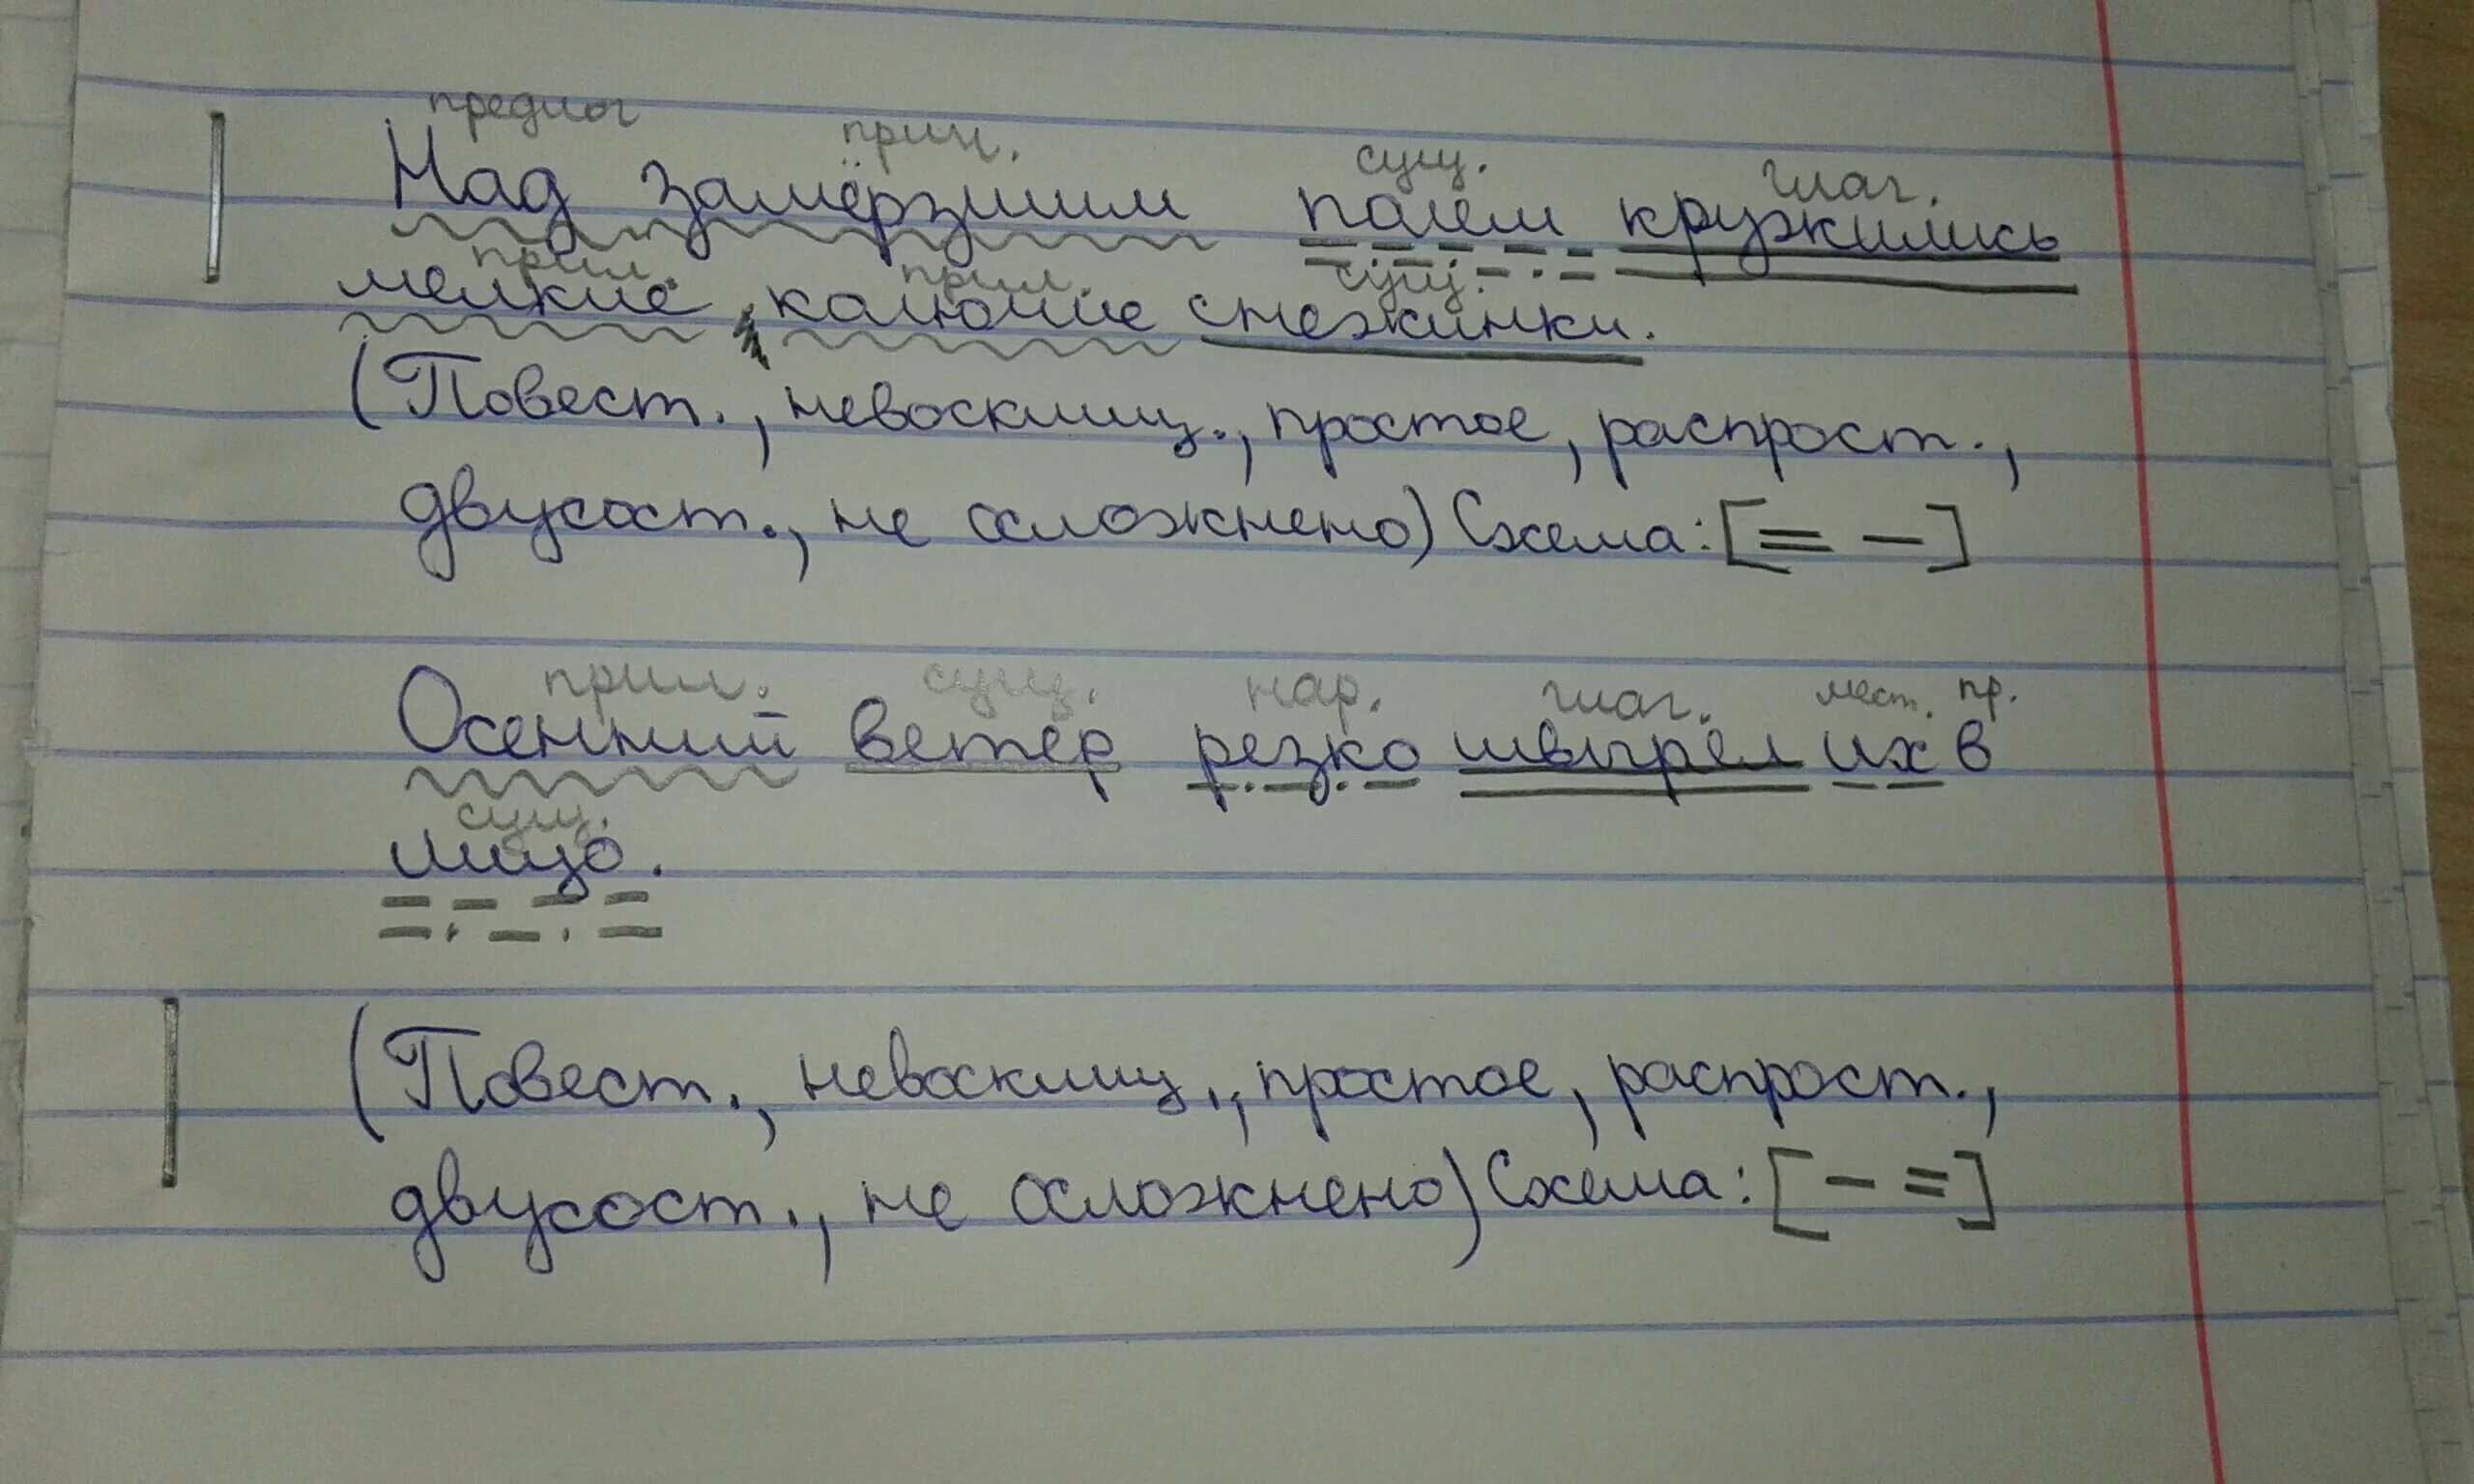 предлог прич. сущ. глаг.
Над замёрзшим полем кружились
прил. прил. сущ.
мелкие, колючие снежинки.
(Повест., невосклиц., простое, распрост.,
двусост., не осложнено) Схема: [= –]
прил. сущ. нар. глаг. мест. пр.
Осенний ветер резко швырял их в
сущ.
лицо.
(Повест., невосклиц., простое, распрост.,
двусост., не осложнено) Схема: [– =]